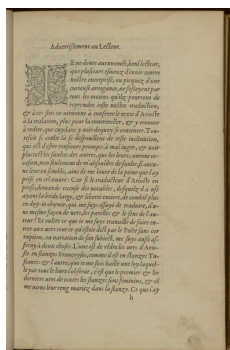 Advertissement au Lecteur.
IE me doute aucunemēt, benī lecteur,
que plusieurs esmeuz d'envie contre
nostre entreprise, ou picquez d'une
curieuse arrogance, ne s'essayent par
tous les moiens qu'ilz pourront de
reprendre ceste nostre traduction,
& à ces fins ne viennent à conferer le texte d'Arioste
à la tralation, plus pour la contreroller, & y trouver
à redire, que cuydans y voir dequoy se contenter. Tou-
tesfois il coulte la desfournie de ceste inclination,
qui est d'estre tousiours prompts à mal iuger, & voir
plustost les faultes des autres, que les leurs, auront oc-
casion, non seulement de m'absouldre de faulte d'aucu-
ne leur en semble, ains de me louer de la peine que i'ay
prise en cest œuvre. Car si le traducteur d'Arioste en
prose, demande excuse des vocables, desquelz il a usé
ayant la bride large, & liberté entiere, de combiē plus
en doy-ie chevir, qui me suys essayé de traduire, d'u-
ne mesme façon de vers, les parolles & le sens de l'au-
teur? Et oultre ce que ie me suys travaillé de faire en-
trer aux vers tout ce qui estoit dict par le Poëte sans cor-
ruption, ou narration de son subiect, me suys aussi as-
servy à deux choses. L'une est de redre les vers d'Ario-
ste en stanzes Françoyses, comme il est en stanzes Tus-
canes: & l'autre, que ie me suis baillé une loy laquel-
le par tout le livre i'observe, c'est que le premier & les
derniers vers de toutes les stanzes sont feminins, & cō
me menu leur reng mariez dans la stanze. Ce que i'ay
b